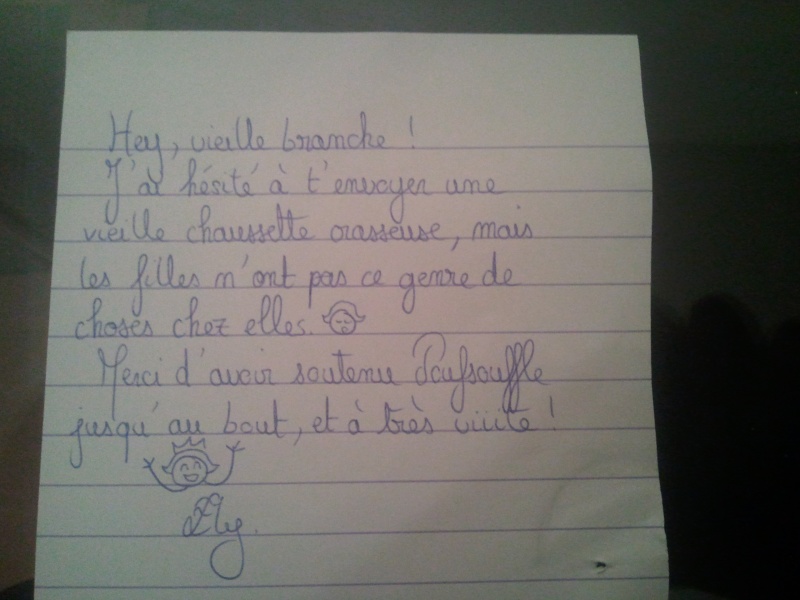 Hey, vieille branche !
J'ai hésité à t'envoyer une
vieille chaussette crasseuse, mais
les filles n'ont pas ce genre de
choses chez elles.
Merci d'avoir soutenu Poufsouffle
jusqu'au bout, et à très viiite !
Ely.